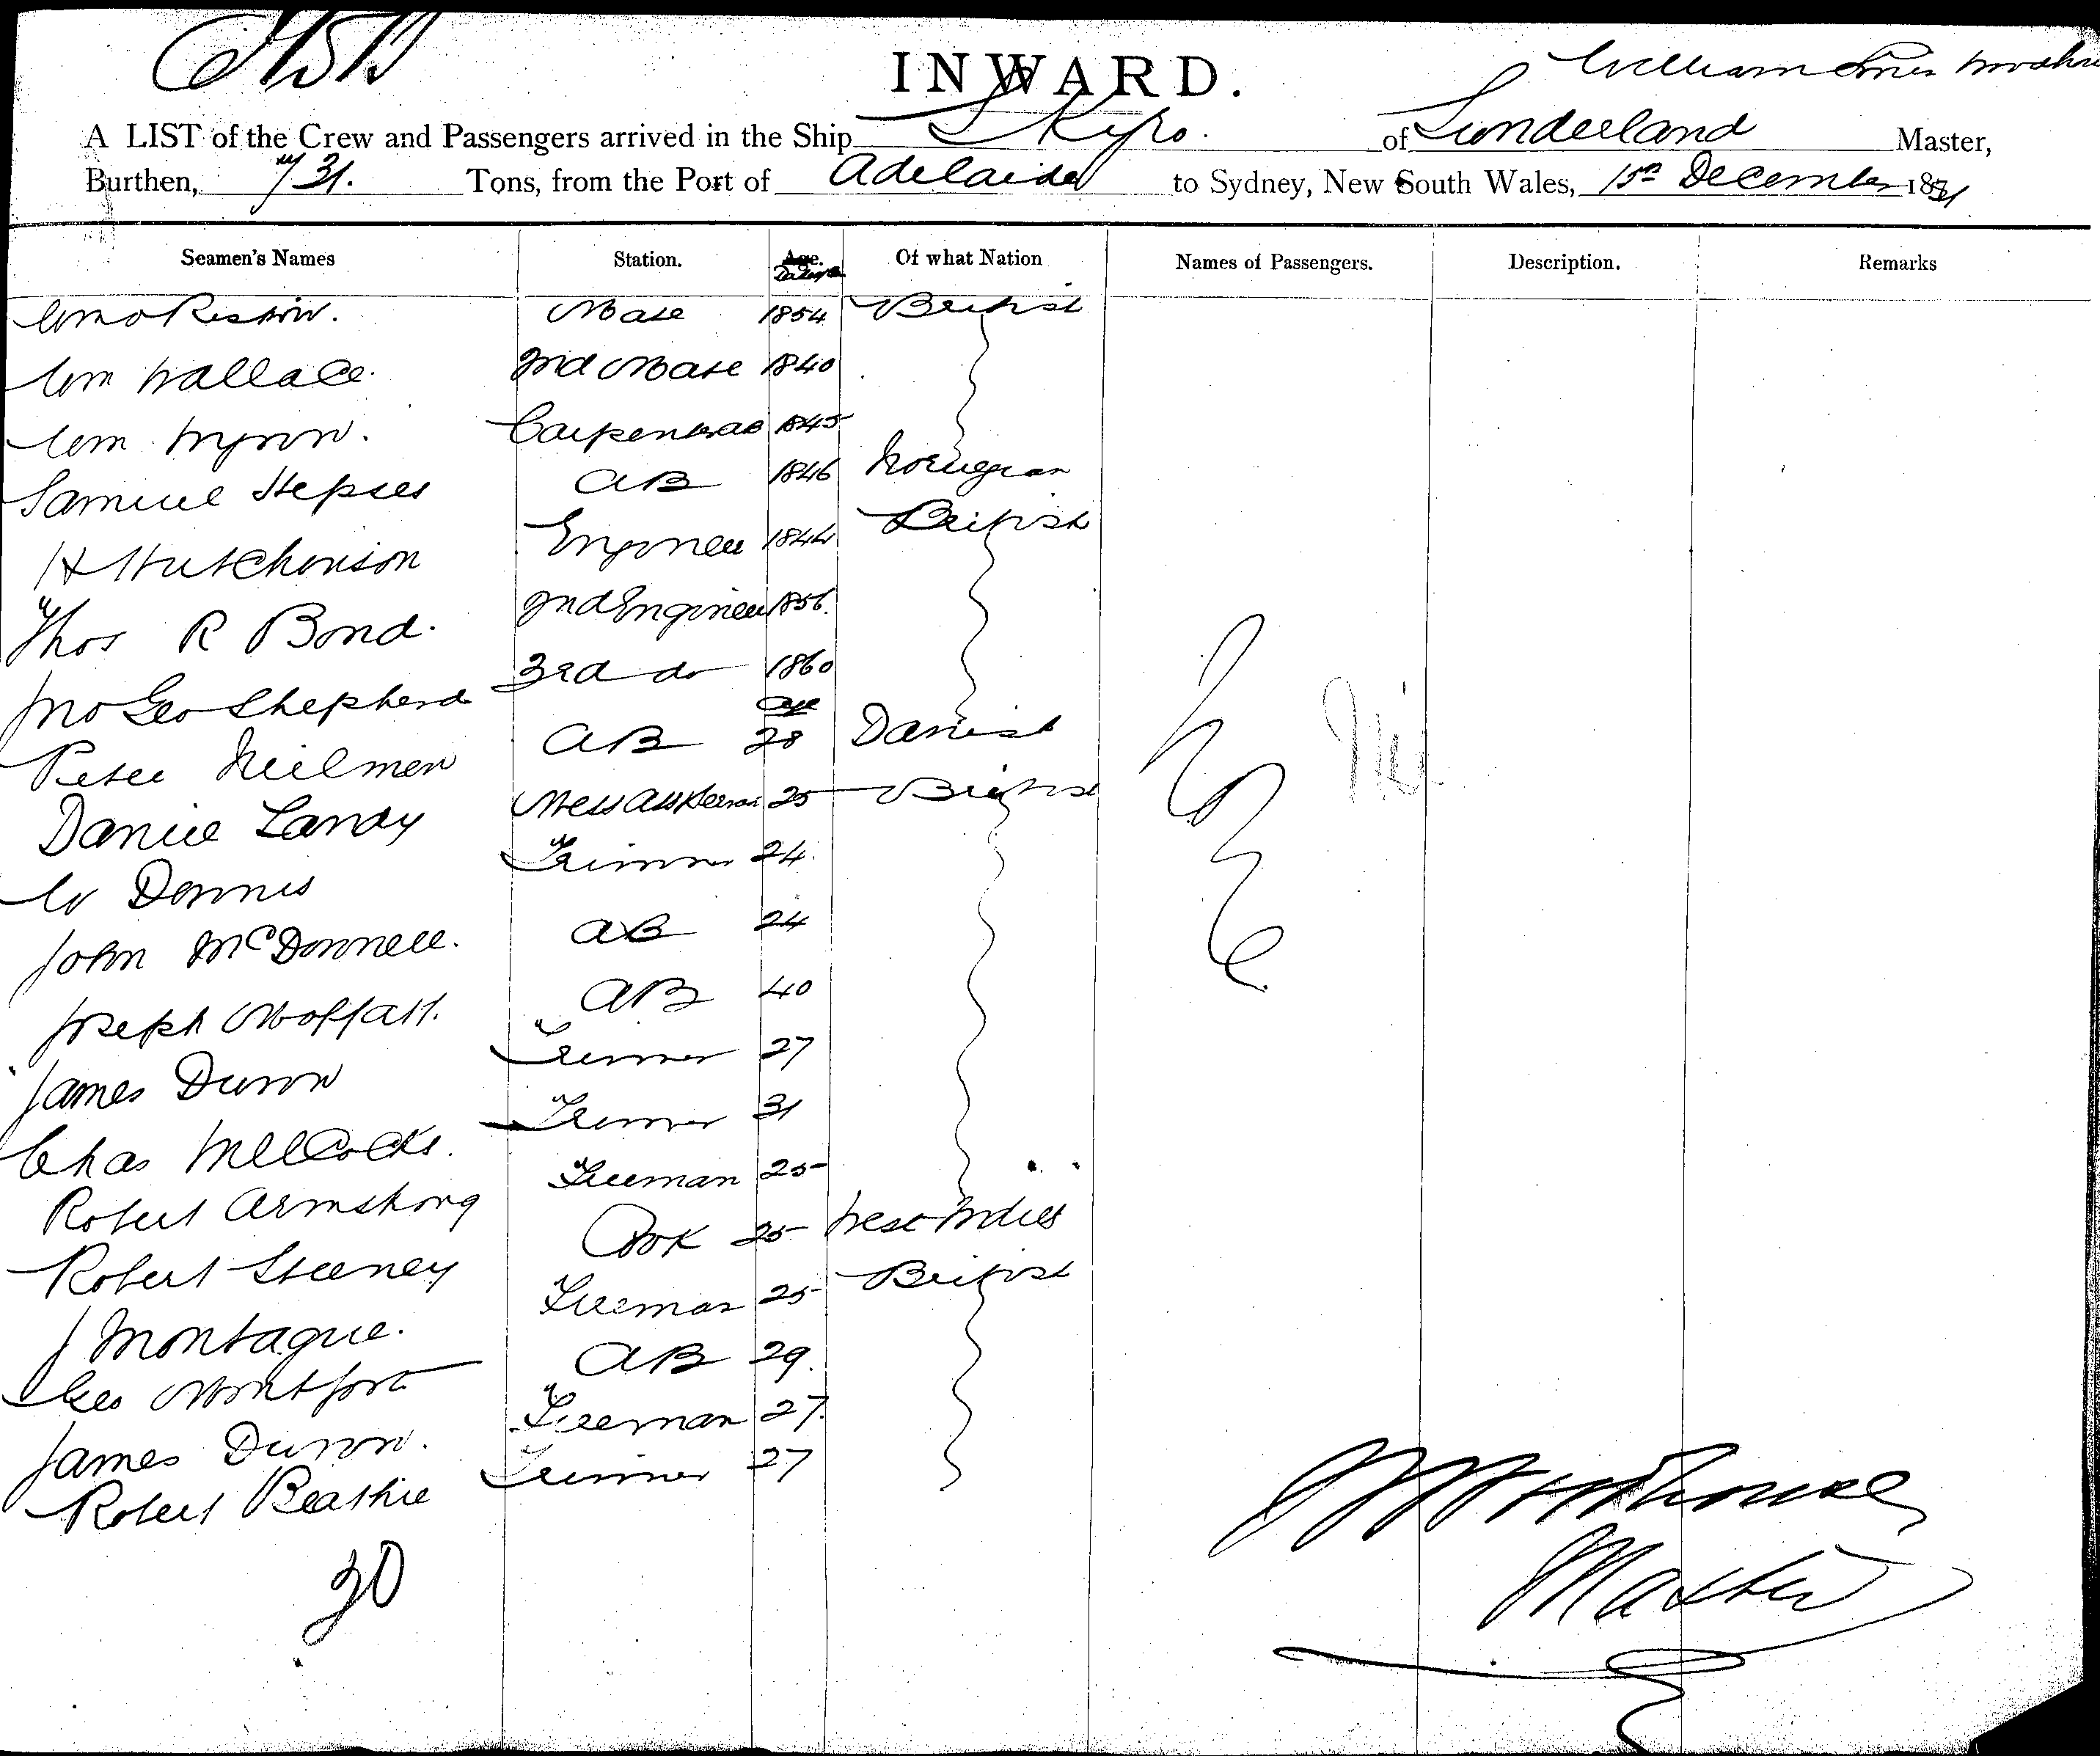 INWARD.
William
A LIST of the Crew and Passengers arrived in the Ship Skyro. of Sunderland Master,
Burthen, 731. Tons, from the Port of Adelaide to Sydney, New South Wales, 15th December 1881
Seamen's Names Station. Age. Of what Nation Names of Passengers. Description. Remarks
Mate 1854 British
Wm Wallace 2nd Mate 1840
Wm Carpenter 1845
Samuel AB 1846 Norwegian
H Hutchinson Engineer 1844 British
Thos R Bond. 2nd Engineer 1856.
Jno Geo Shepherd 3rd do 1860
Age
Peter Neilmen AB 28 Danish
Daniel Landy Mess 25 British
W Dennis Trimmer 24.
John McDonnell. AB 24
Joseph Moffatt. AB 40
James Dunn Trimmer 27
Chas Willcocks. Trimmer 31
Robert Armstrong Fireman 25
Robert Steeney Cook 25 West Indies
J Montague. Fireman 25 British
Geo Montfort AB 29.
James Dunn. Fireman 27.
Robert Beattie Trimmer 27
Nil
20
Master